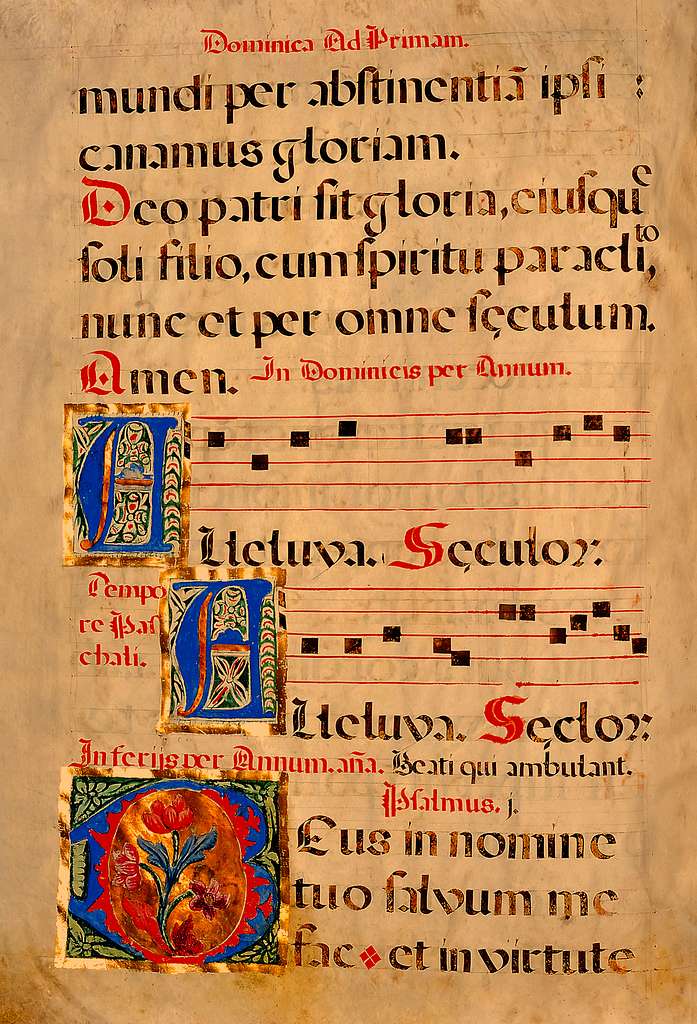 Dominica Ad Primam.
mundi per abstinentiā ipsi :
canamus gloriam.
Deo patri sit gloria, eiusquē
soli filio, cum spiritu paraclito,
nunc et per omne sęculum.
Amen. In Dominicis per Annum.
Alleluya. Sęculor:
Tempo
re Pas
chali.
Alleluya. Sęclor:
In ferijs per Annum. aña. Beati qui ambulant.
Psalmus. j.
DEus in nomine
tuo salvum me
fac et in virtute